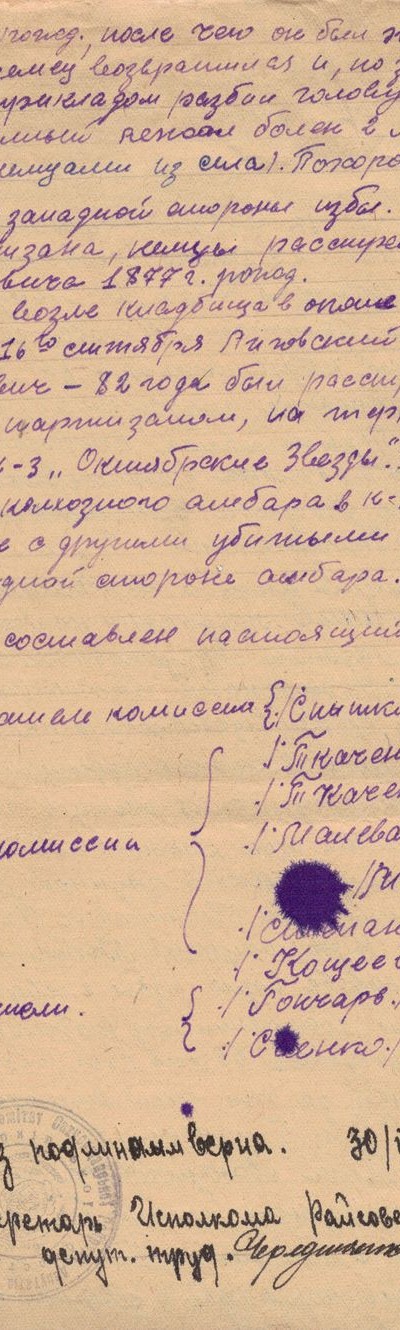 после чего он был
немец возвратился и, по
прикладом разбил голову
лежал более 2
немцами из села). Похоро
западной стороны избы.
тизана, немцы расстре
вича 1877 г. рожд.
возле кладбища в окопе
16го сентября Лиховский
вич – 82 года был расст
партизаном, на тер
к-з „Октябрские Звезды".
колхозного амбара в к-
е с другими убитыми
адной стороне амбара.
составлен настоящий
комиссии {/
/Ткачен
/Ткаче
комиссии /Малева
/Кощеев
/Гончарв.
/С енко./
с подлинным верна. 30/
кретарь Исполкома Райсове
депут. труд.